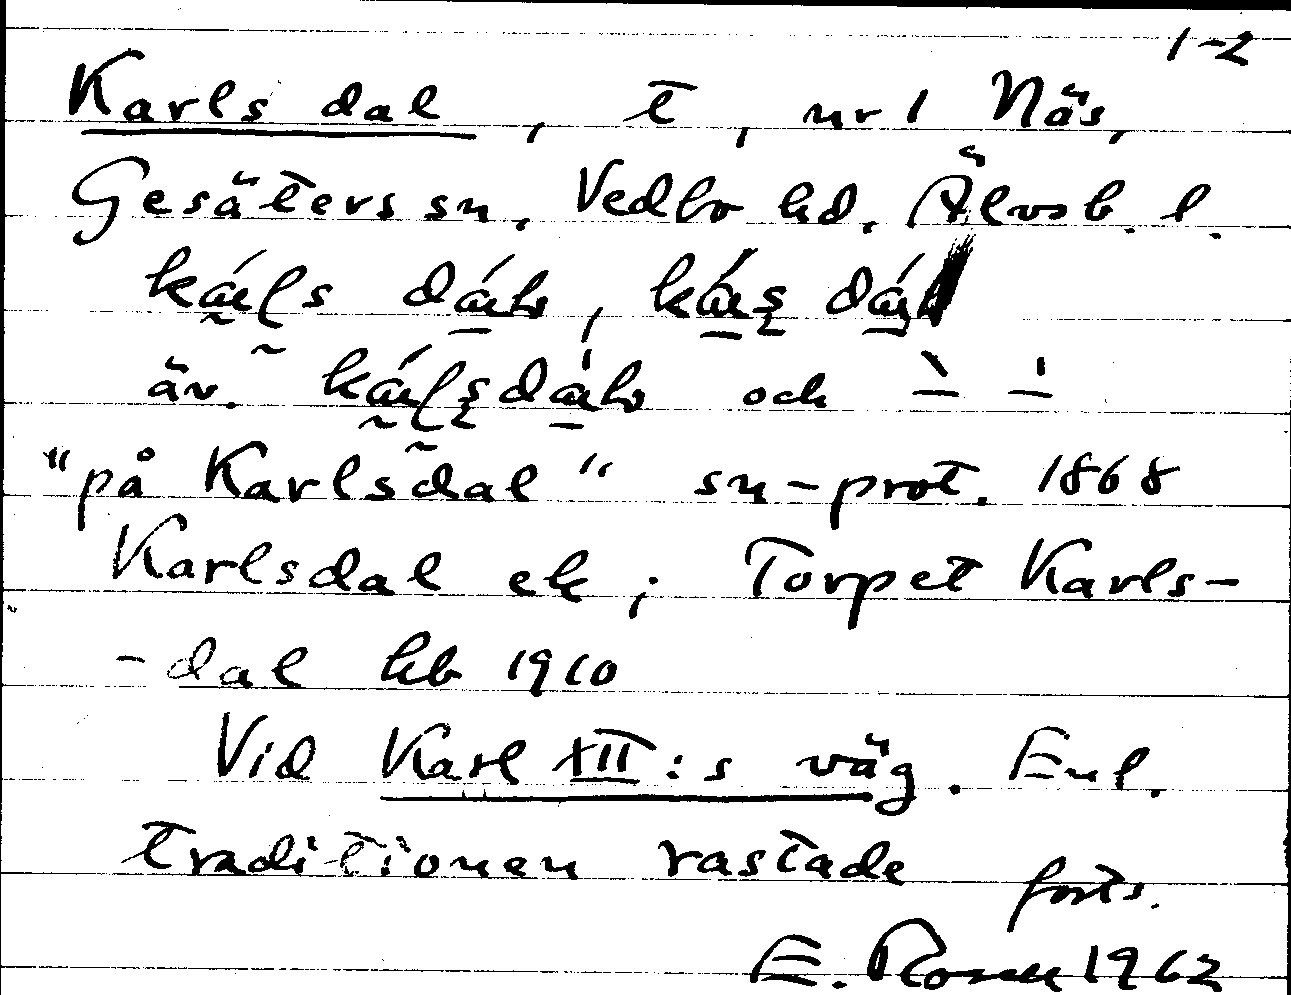 1-2
Karlsdal, t, nr 1 Näs,
Gesäters sn. Vedbo hd. Älvsb. l.
äv. och
"på Karlsdal" sn-prot. 1868
Karlsdal ek; Torpet Karls-
-dal hb 1910
Vid Karl XII:s väg. Enl.
traditionen rastade
forts.
E. Rosen 1962